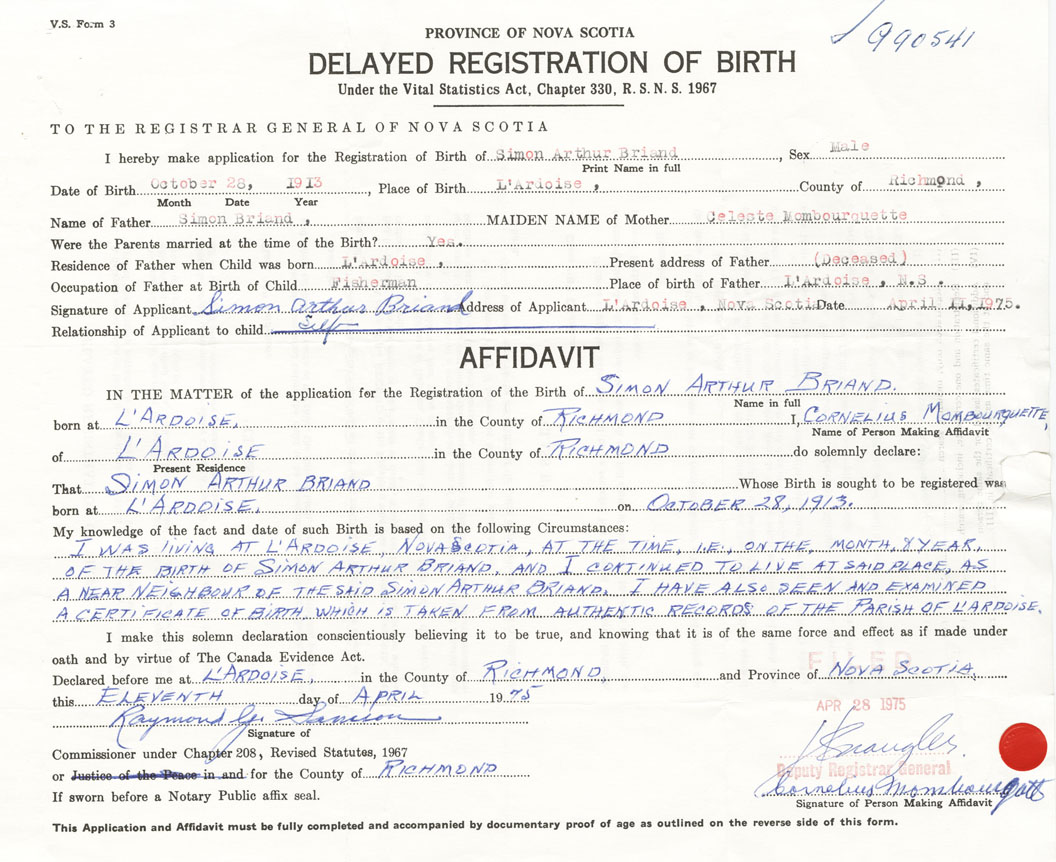 V.S. Form 3
990541
PROVINCE OF NOVA SCOTIA
DELAYED REGISTRATION OF BIRTH
Under the Vital Statistics Act, Chapter 330, R.S.N.S. 1967
TO THE REGISTRAR GENERAL OF NOVA SCOTIA
I hereby make application for the Registration of Birth of Simon Arthur Briand, Sex Male
Print Name in full
Date of Birth October 28, 1913, Place of Birth L'Ardoise, County of Richmond,
Month Date Year
Name of Father Simon Briand, MAIDEN NAME of Mother Celeste Mombourquette
Were the Parents married at the time of the Birth? Yes.
Residence of Father when Child was born L'ardoise, Present address of Father (Deceased)
Occupation of Father at Birth of Child Fisherman Place of birth of Father L'Ardoise, N.S.
Signature of Applicant Simon Arthur Briand Address of Applicant L'Ardoise, Nova Scotia Date April 11, 1975.
Relationship of Applicant to child Self
AFFIDAVIT
IN THE MATTER of the application for the Registration of the Birth of SIMON ARTHUR BRIAND.
Name in full
born at L'ARDOISE, in the County of RICHMOND I, CORNELIUS MOMBOURQUETTE,
Name of Person Making Affidavit
of L'ARDOISE in the County of RICHMOND do solemnly declare:
Present Residence
That SIMON ARTHUR BRIAND Whose Birth is sought to be registered was
born at L'ARDOISE, on OCTOBER 28, 1913.
My knowledge of the fact and date of such Birth is based on the following Circumstances:
I WAS LIVING AT L'ARDOISE, NOVA SCOTIA, AT THE TIME, I.E., ON THE, MONTH, & YEAR,
OF THE BIRTH OF SIMON ARTHUR BRIAND, AND I CONTINUED TO LIVE AT SAID PLACE, AS
A NEAR NEIGHBOUR OF THE SAID SIMON ARTHUR BRIAND. I HAVE ALSO SEEN AND EXAMINED
A CERTIFICATE OF BIRTH WHICH IS TAKEN FROM AUTHENTIC RECORDS OF THE PARISH OF L'ARDOISE.
I make this solemn declaration conscientiously believing it to be true, and knowing that it is of the same force and effect as if made under
oath and by virtue of The Canada Evidence Act.
FILED
Declared before me at L'ARDOISE, in the County of RICHMOND, and Province of NOVA SCOTIA,
this ELEVENTH day of APRIL 1975
APR 28 1975
Raymond G. Samson
Signature of
Commissioner under Chapter 208, Revised Statutes, 1967
or Justice of the Peace in and for the County of RICHMOND
Deputy Registrar General
Cornelius Mombourquette
If sworn before a Notary Public affix seal.
Signature of Person Making Affidavit
This Application and Affidavit must be fully completed and accompanied by documentary proof of age as outlined on the reverse side of this form.